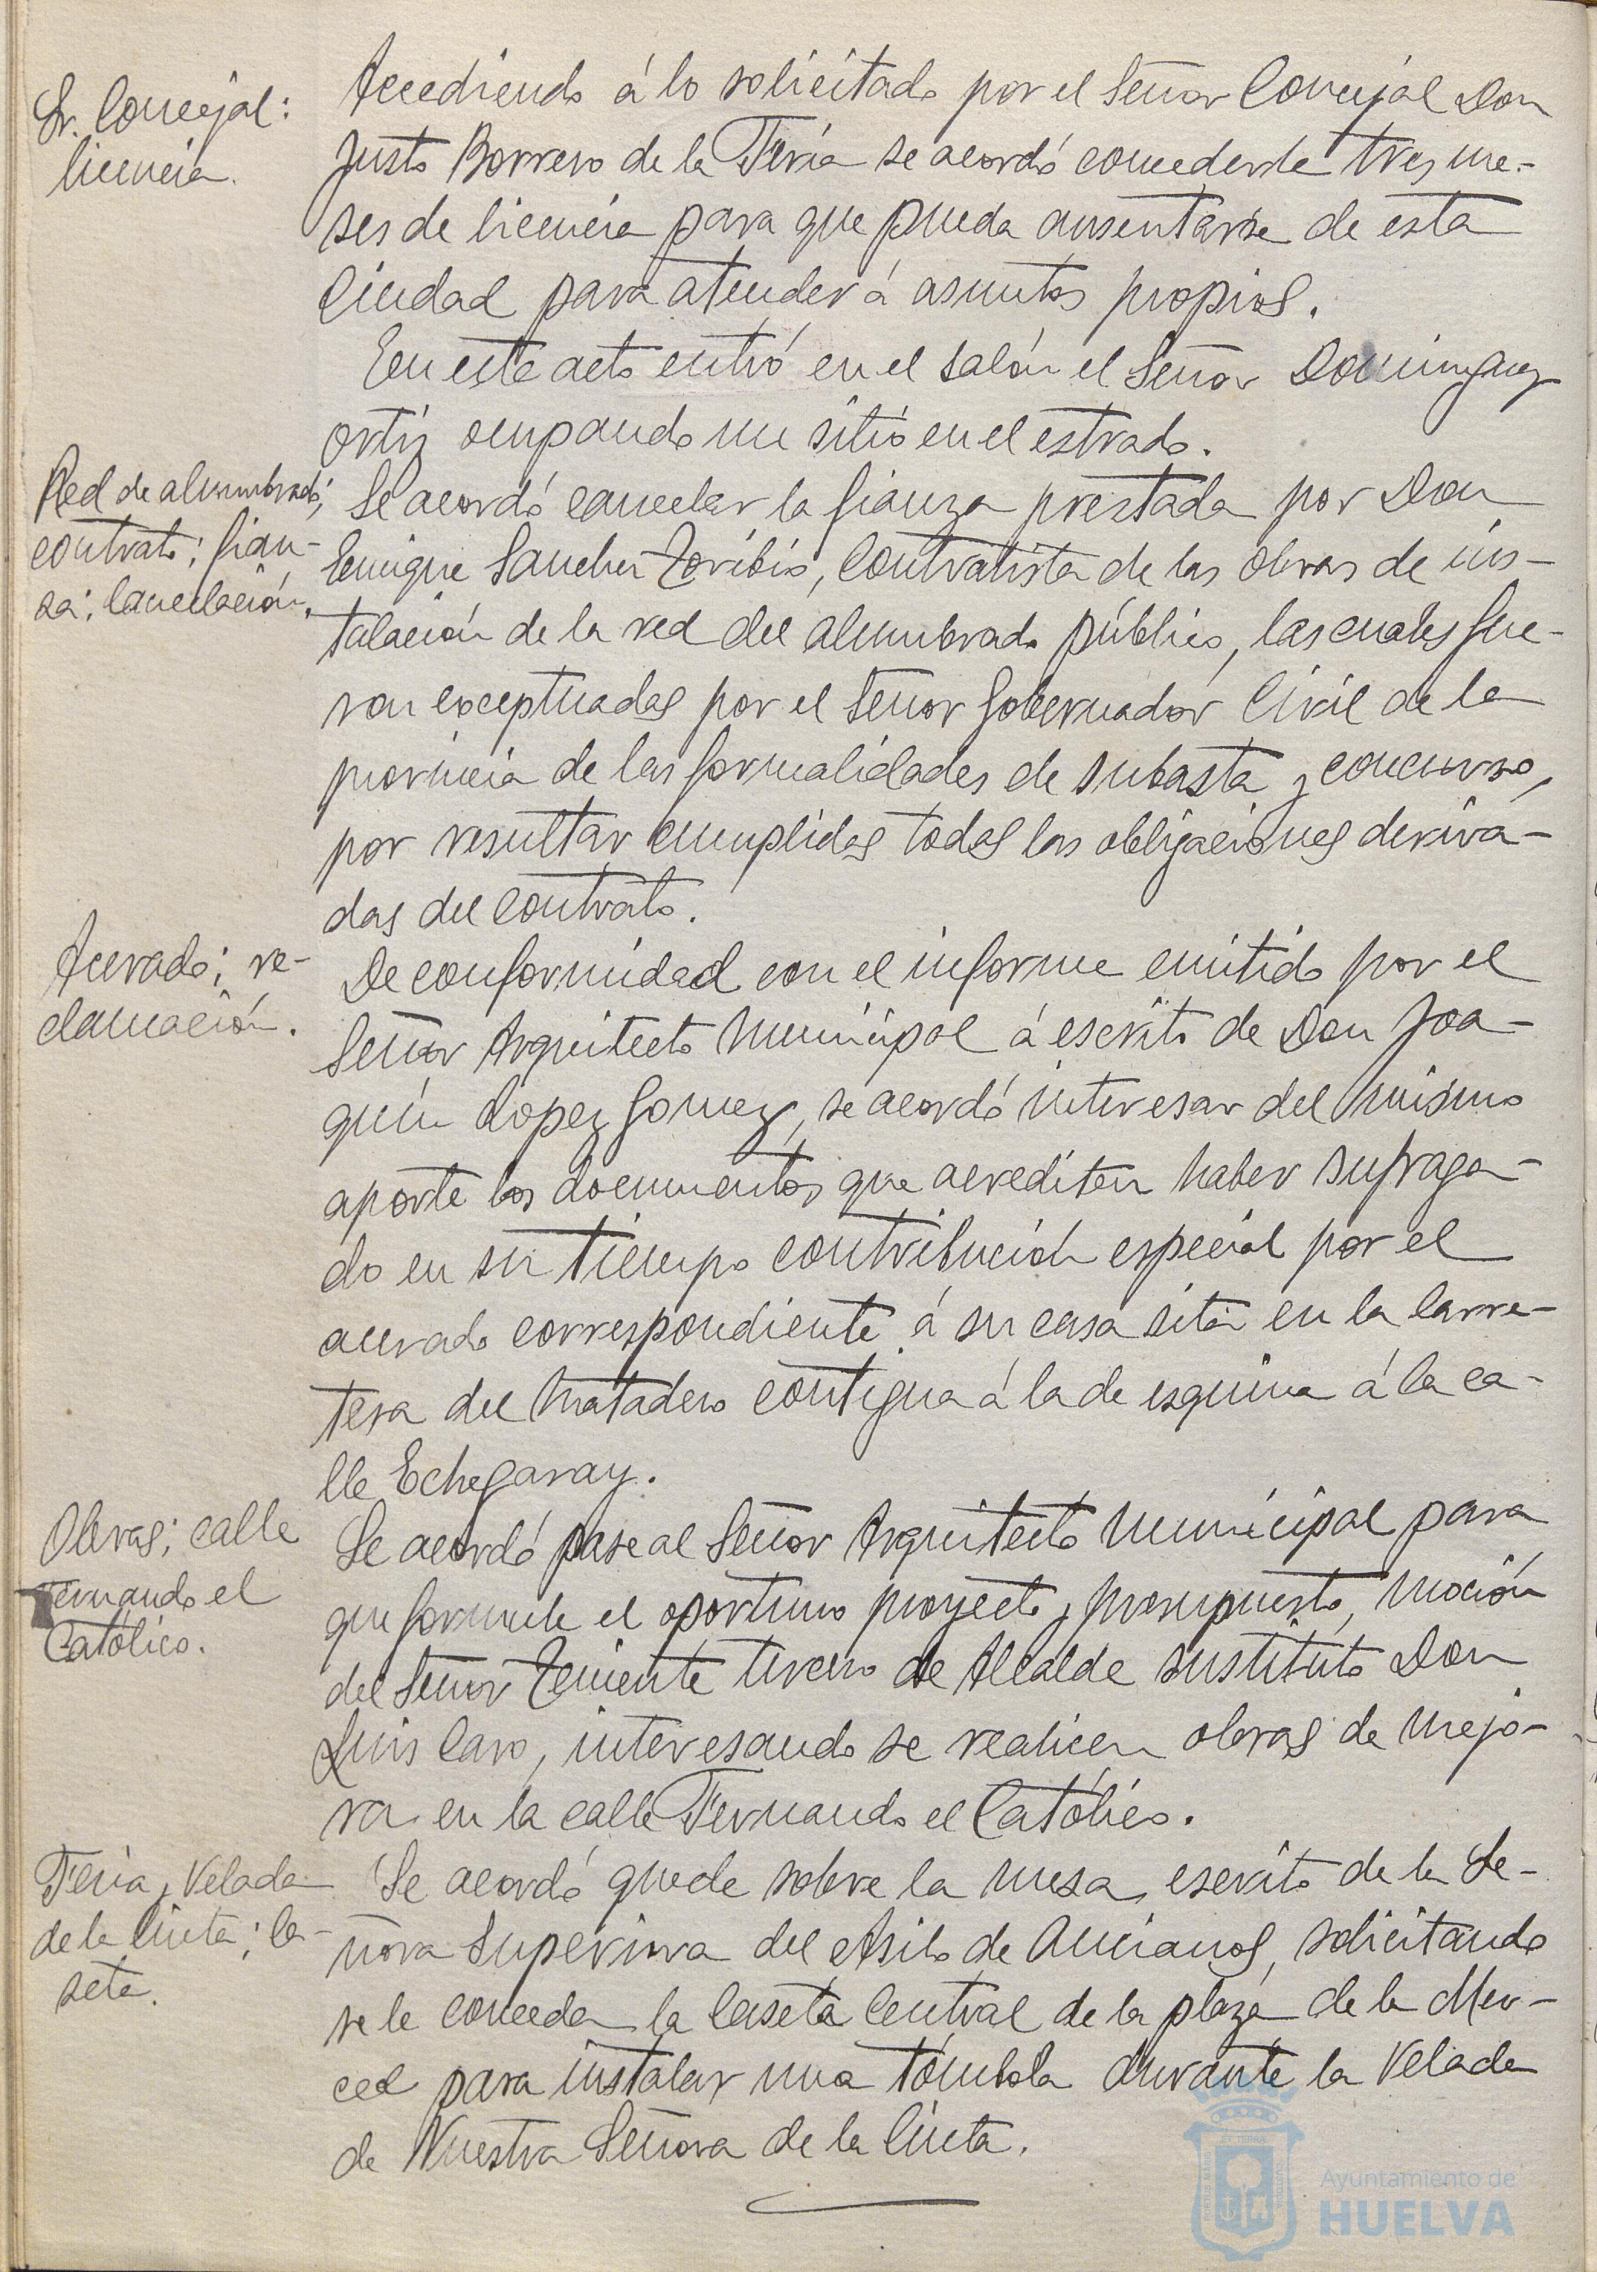 Sr. Concejal:
licencia.
Accediendo á lo solicitado por el Señor Concejal Don
Justo Borrero de la Feria se acordó concederle tres me-
ses de licencia para que pueda ausentarse de esta
Ciudad para atender á asuntos propios.
En este acto entró en el salón el Señor Dominguez
Ortiz ocupando un sitio en el estrado.
Red de alumbrado;
contrato; fian-
za; cancelación.
Se acordó cancelar la fianza prestada por Don
Enrique Sanchez Toribio, Contratista de las obras de ins-
talación de la red del alumbrado público, las cuales fue-
ron exceptuadas por el Señor Gobernador Civil de la
provincia de las formalidades de subasta y concurso,
por resultar cumplidas todas las obligaciones deriva-
das del contrato.
Acerado; re-
clamación.
De conformidad con el informe emitido por el
Señor Arquitecto Municipal á escrito de Don Joa-
quín Lopez Gomez, se acordó interesar del mismo
aporte los documentos que acrediten haber sufraga-
do en su tiempo contribución especial por el
acerado correspondiente á su casa sita en la Carre-
tera del Matadero contigua á la de esquina á la ca-
lle Echegaray.
Obras; calle
Fernando el
Católico.
Se acordó pase al Señor Arquitecto Municipal para
que formule el oportuno proyecto y presupuesto, moción
del Señor Teniente tercero de Alcalde sustituto Don
Luis Caro, interesando se realicen obras de mejo-
ra en la calle Fernando el Católico.
Feria y Velada
de la Cinta; ca-
seta.
Se acordó quede sobre la mesa, escrito de la Se-
ñora Superiora del Asilo de Ancianos, solicitando
se le conceda la Caseta Central de la plaza de la Mer-
ced para instalar una tómbola durante la Velada
de Nuestra Señora de la Cinta.
Ayuntamiento de
HUELVA